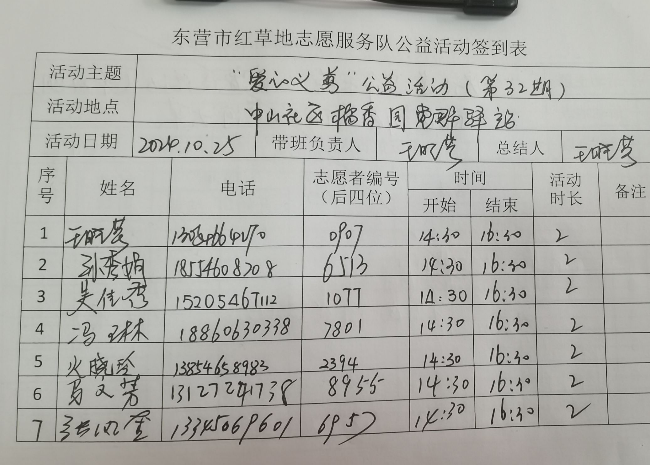 东营市红草地志愿服务队公益活动签到表
活动主题 "爱心义剪"公益活动(第32期)
活动地点 中山社区梅香园 驿站
活动日期 2024.10.25 带班负责人 总结人
序号 姓名 电话 志愿者编号(后四位) 时间 活动时长 备注
开始 结束
1 0907 14:30 16:30 2
2 孙秀娟 18554608208 6513 14:30 16:30 2
3 吴佳秀 15205467112 1077 14:30 16:30 2
4 冯玉林 18860630338 7801 14:30 16:30 2
5 火晓玲 13854658983 2394 14:30 16:30 2
6 马文芳 13127241738 8955 14:30 16:30 2
7 13345069601 6957 14:30 16:30 2